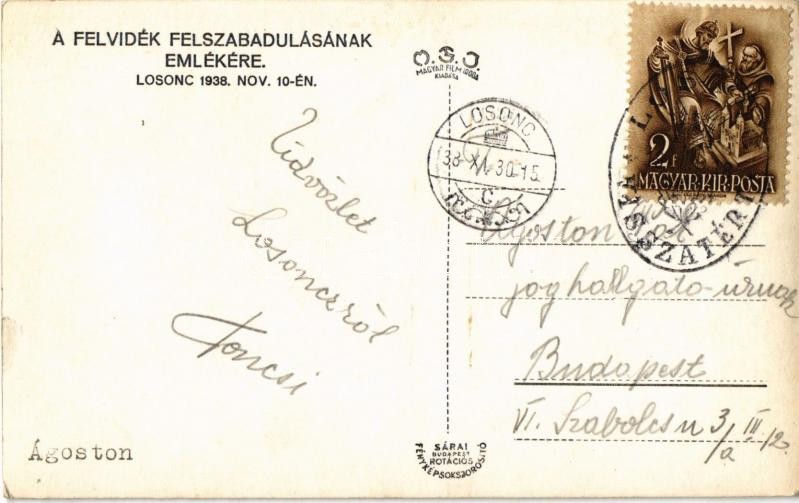 A FELVIDÉK FELSZABADULÁSÁNAK
EMLÉKÉRE.
LOSONC 1938. NOV. 10-ÉN.
MAGYAR FILM IRODA
KIADÁSA
LOSONC
38 XI 30-15
C
2f
MAGYAR·KIR·POSTA
VISSZATÉRT
Üdvözlet
Losoncról
Joncsi
Ágoston
joghallgató-úrnak
Budapest
VI. Szabolcs u 3/a III/2.
Ágoston
SÁRAI
BUDAPEST
ROTÁCIÓS
FÉNYKÉPSOKSZOROSÍTÓ